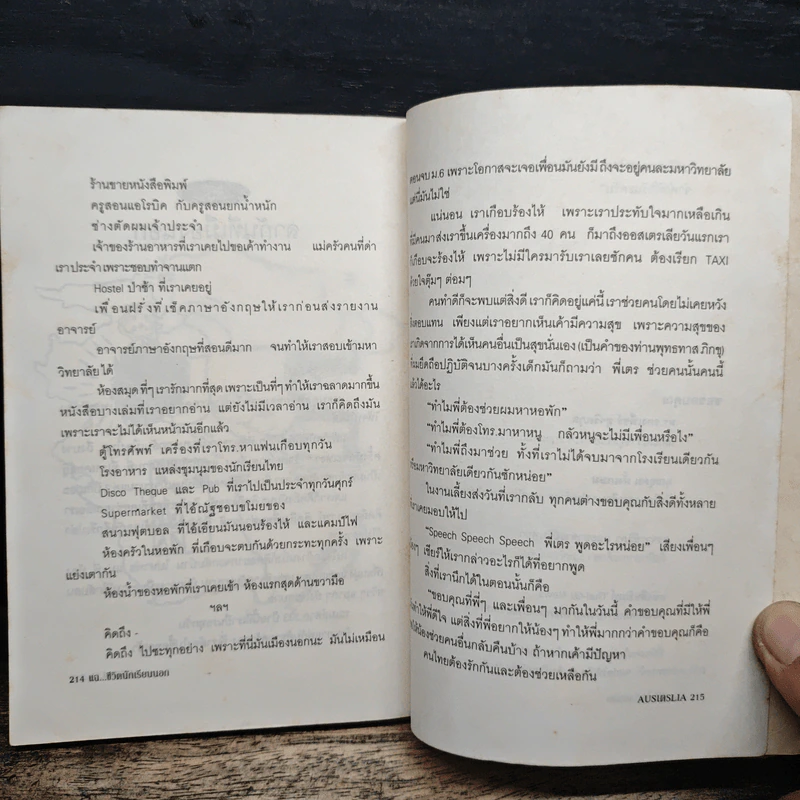 ร้านขายหนังสือพิมพ์
ครูสอนแอโรบิค กับครูสอนยกน้ำหนัก
ช่างตัดผมเจ้าประจำ
เจ้าของร้านอาหารที่เราเคยไปขอเค้าทำงาน แม่ครัวคนที่ด่า
เราประจำเพราะชอบทำจานแตก
Hostel ป่าช้า ที่เราเคยอยู่
เพื่อนฝรั่งที่เช็คภาษาอังกฤษให้เราก่อนส่งรายงาน
อาจารย์
อาจารย์ภาษาอังกฤษที่สอนดีมาก จนทำให้เราสอบเข้ามหา
วิทยาลัยได้
ห้องสมุด ที่ๆ เรารักมากที่สุด เพราะเป็นที่ๆ ทำให้เราฉลาดมากขึ้น
หนังสือบางเล่มที่เราอยากอ่าน แต่ยังไม่มีเวลาอ่าน เราก็คิดถึงมัน
เพราะเราจะไม่ได้เห็นหน้ามันอีกแล้ว
ตู้โทรศัพท์ เครื่องที่เราโทร.หาแฟนเกือบทุกวัน
โรงอาหาร แหล่งชุมนุมของนักเรียนไทย
Disco Theque และ Pub ที่เราไปเป็นประจำทุกวันศุกร์
Supermarket ที่ไอ้ณัฐชอบขโมยของ
สนามฟุตบอล ที่ไอ้เอียนมันนอนร้องไห้ และแคมป์ไฟ
ห้องครัวในหอพัก ที่เกือบจะตบกันด้วยกระทะทุกครั้ง เพราะ
แย่งเตากัน
ห้องน้ำของหอพักที่เราเคยเข้า ห้องแรกสุดด้านขวามือ
ฯลฯ
คิดถึง -
คิดถึง ไปซะทุกอย่าง เพราะที่นี่มันเมืองนอกนะ มันไม่เหมือน
214 แฉ...ชีวิตนักเรียนนอก
ตอนจบ ม.6 เพราะโอกาสจะเจอเพื่อนมันยังมี ถึงจะอยู่คนละมหาวิทยาลัย
แต่นี่มันไม่ใช่
แน่นอน เราเกือบร้องไห้ เพราะเราประทับใจมากเหลือเกิน
ที่มีคนมาส่งเราขึ้นเครื่องมากถึง 40 คน ก็มาถึงออสเตรเลียวันแรกเรา
ก็เกือบจะร้องไห้ เพราะไม่มีใครมารับเราเลยซักคน ต้องเรียก TAXI
ด้วยใจตุ๊มๆ ต่อมๆ
คนทำดีก็จะพบแต่สิ่งดี เราก็คิดอยู่แค่นี้ เราช่วยคนโดยไม่เคยหวัง
สิ่งตอบแทน เพียงแต่เราอยากเห็นเค้ามีความสุข เพราะความสุขของ
เราเกิดจากการได้เห็นคนอื่นเป็นสุขนั่นเอง (เป็นคำของท่านพุทธทาส ภิกขุ)
ที่ผมยึดถือปฏิบัติจนบางครั้งเด็กมันก็ถามว่า พี่เตร ช่วยคนนั้นคนนี้
แล้วได้อะไร
“ทำไมพี่ต้องช่วยผมหาหอพัก”
“ทำไมพี่ต้องโทร.มาหาหนู กลัวหนูจะไม่มีเพื่อนหรือไง”
“ทำไมพี่ถึงมาช่วย ทั้งที่เราไม่ได้จบมาจากโรงเรียนเดียวกัน
หรือมหาวิทยาลัยเดียวกันซักหน่อย”
ในงานเลี้ยงส่งวันที่เรากลับ ทุกคนต่างขอบคุณกับสิ่งดีทั้งหลาย
ที่เราเคยมอบให้ไป
“Speech Speech Speech พี่เตร พูดอะไรหน่อย” เสียงเพื่อนๆ
น้องๆ เชียร์ให้เรากล่าวอะไรก็ได้ที่อยากพูด
สิ่งที่เรานึกได้ในตอนนั้นก็คือ
“ขอบคุณที่พี่ๆ และเพื่อนๆ มากันในวันนี้ คำขอบคุณที่มีให้พี่
มันทำให้พี่ดีใจ แต่สิ่งที่พี่อยากให้น้องๆ ทำให้พี่มากกว่าคำขอบคุณก็คือ
ให้น้องช่วยคนอื่นกลับคืนบ้าง ถ้าหากเค้ามีปัญหา
คนไทยต้องรักกันและต้องช่วยเหลือกัน
AUSเตรLIA 215